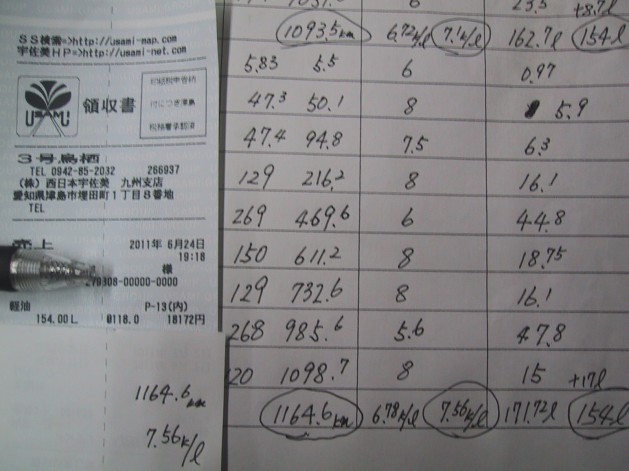 SS検索=>http://usami-map.com
宇佐美HP=>http://usami-net.com
USAMI
領収書
3号鳥栖
TEL 0942-85-2032 266937
(株) 西日本宇佐美 九州支店
愛知県津島市埋田町1丁目8番地
TEL
売上 2011年 6月24日
19:18
様
軽油 P-13(内)
154.00L @118.0 18172円
1164.6km
7.56K/l
23.5 +8.7l
1093.5km 6.72K/l 7.1K/l 162.7l 154l
5.83 5.5 6 0.97
47.3 50.1 8 5.9
47.4 94.8 7.5 6.3
129 216.2 8 16.1
269 469.6 6 44.8
150 611.2 8 18.75
129 732.6 8 16.1
268 985.6 5.6 47.8
120 1098.7 8 15 +17l
1164.6km 6.78K/l 7.56K/l 171.72l 154l